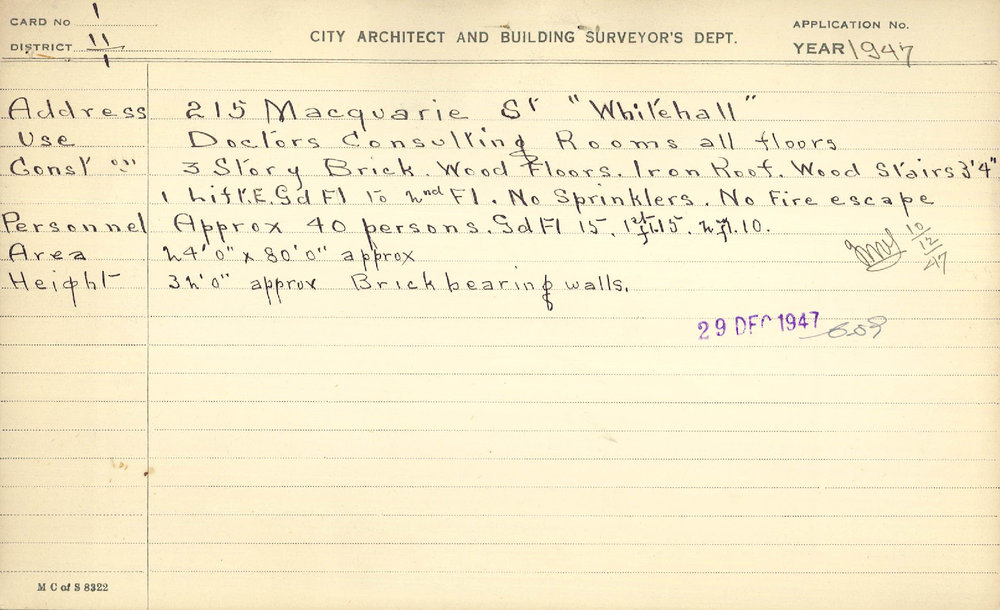 CARD No 1
DISTRICT 11/1
CITY ARCHITECT AND BUILDING SURVEYOR'S DEPT.
APPLICATION No.
YEAR 1947
Address 215 Macquarie St "Whitehall"
Use Doctors Consulting Rooms all floors
Const'on 3 Story Brick. Wood Floors. Iron Roof. Wood Stairs 3'4"
1 Lift.E.Gd Fl to 2nd Fl. No Sprinklers. No Fire escape
Personnel Approx 40 persons. Gd Fl 15. 1st fl.15. 2nd fl.10.
Area 24'0" x 80'0" approx
10/12/47
Height 32'0" approx Brick bearing walls.
29 DEC 1947
M C of S 8322